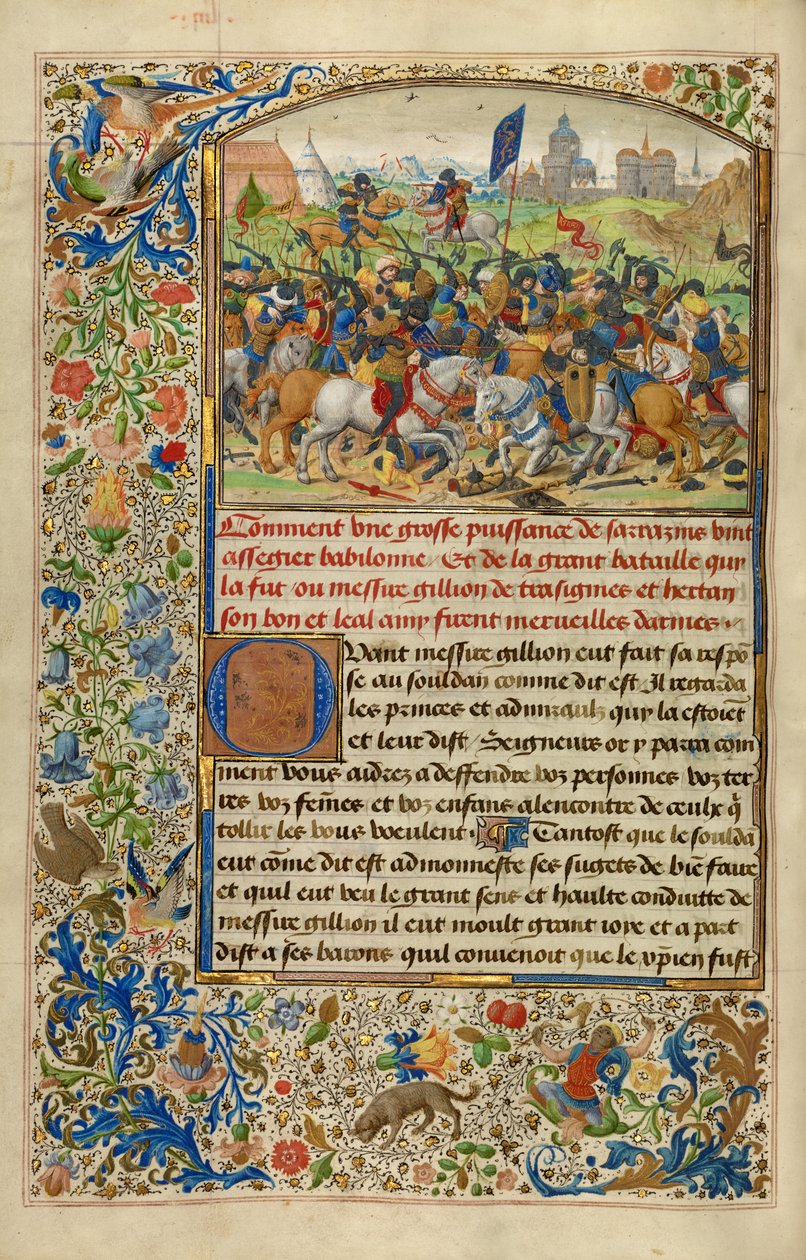 Comment vne grosse puissance de sarrazins vint
assegier babilonne / Et de la grant bataille quy
la fut / ou messire gillion de trasignies et hertan
son bon et leal amy firent merueilles darmes .
Quant messire gillion eut fait sa respõ
se au souldan comme dit est / Il regarda
les princes et admiraulz quy la estoiẽt
et leur dist / Seigneurs or y parra com
ment vous aidrez a deffendre voz personnes voz ter
res voz fem̃es et voz enfans alencontre de ceulx q̃
tollir les vous voeulent . Tantost que le soulda
eut cõme dit est admonneste ses sugets de biẽ faire
et quil eut veu le grant sens et haulte conduitte de
messire gillion il eut moult grant ioye et a part
dist a ses barons quil conuenoit que le xp̃ien fust